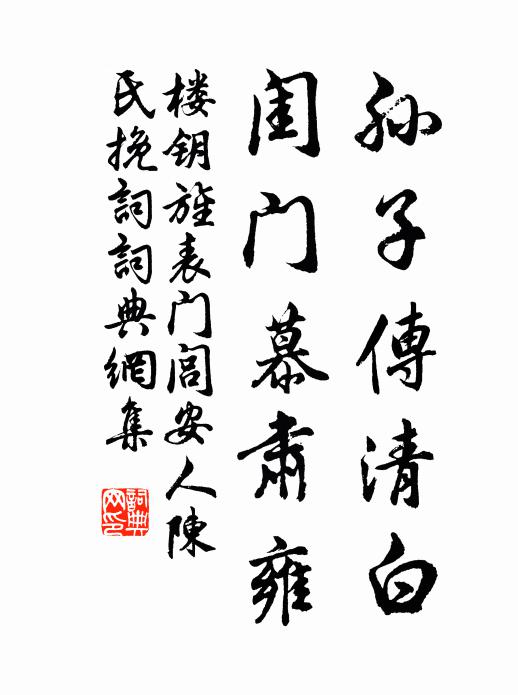 孙子傳清白
闺门慕肃雍
楼钥旌表门闾安人陳
氏挽詞詞典網集
詞典網印